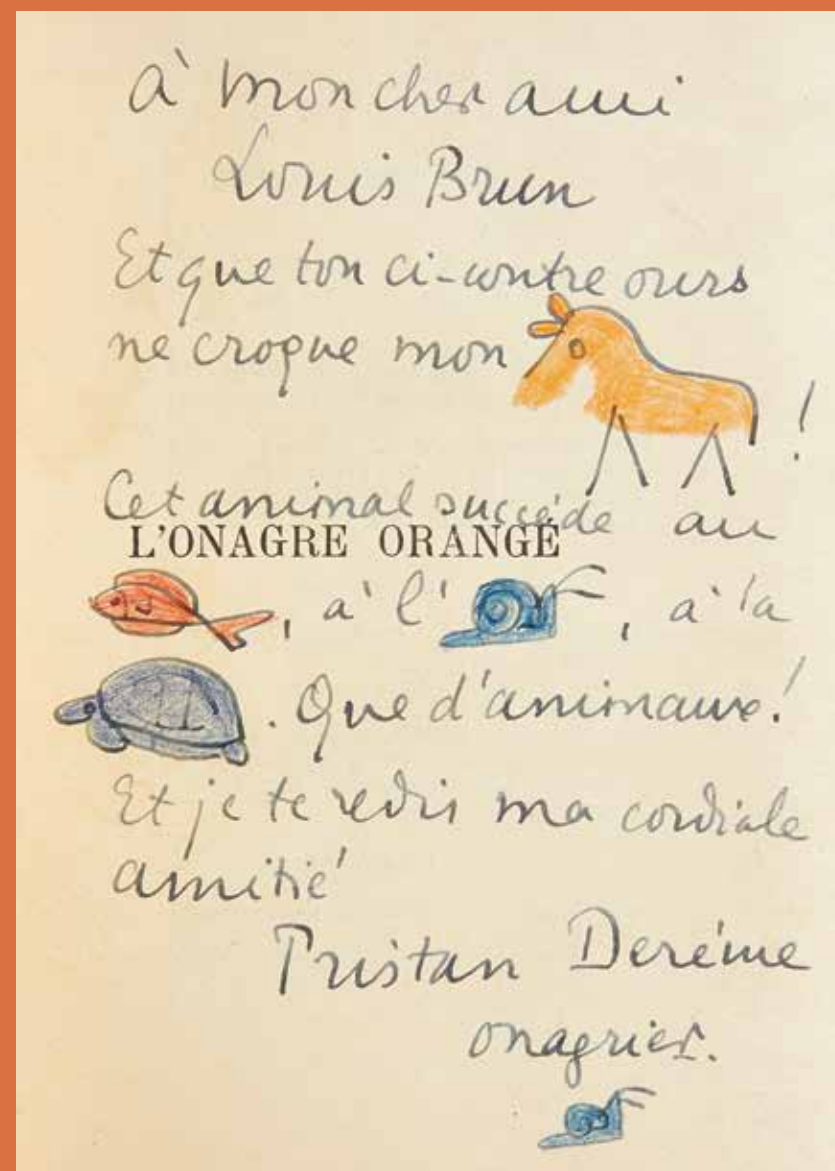 à mon cher ami
Louis Brun
Et que ton ci-contre ours
ne croque mon !
Cet animal succède au
L'ONAGRE ORANGÉ
, à l' , à la
. Que d'animaux!
Et je te redis ma cordiale
amitié
Tristan Derème
onagrier.